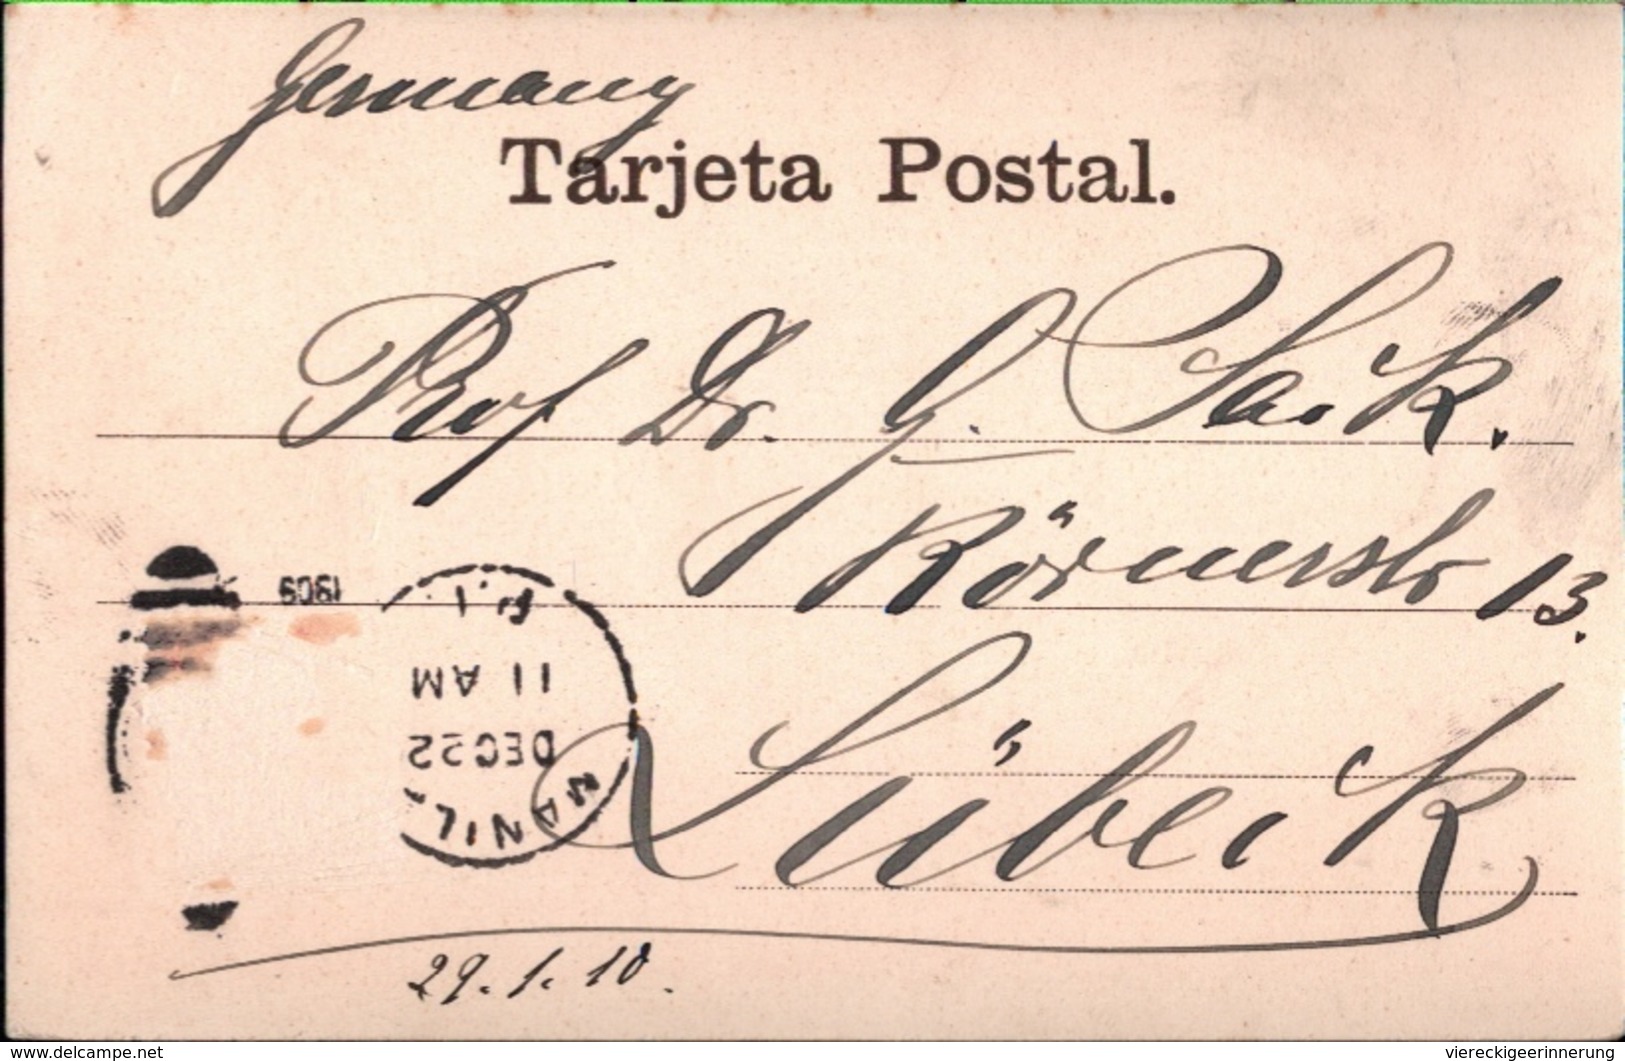 Germany
Tarjeta Postal.
Prof Dr. G. Sack.
Körnerstr 13.
Lübeck
1909
P.I.
11 AM
DEC 22
MANIL
29.1.10.
www.delcampe.net
viereckigeerinnerung